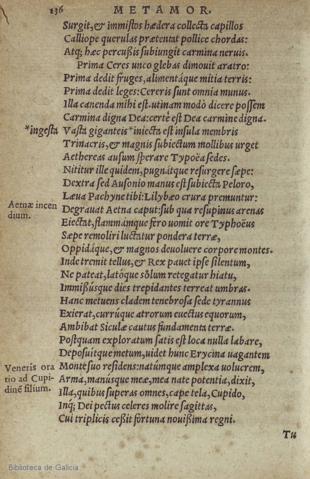 136 METAMOR.
Surgit, & immistos hædera collecta capillos
Calliope querulas prætentat pollice chordas:
Atq; hæc percußis subiungit carmina neruis.
Prima Ceres unco glebas dimouit aratro:
Prima dedit fruges, alimentáque mitia terris:
Prima dedit leges: Cereris sunt omnia munus.
Illa canenda mihi est. utinam modò dicere possem
Carmina digna Dea: certè est Dea carmine digna.
*ingesta Vasta giganteis *iniecta est insula membris
Trinacris, & magnis subiectum mollibus urget
Aethereas ausum sperare Typoëa sedes.
Nititur ille quidem, pugnátque resurgere sæpe:
Dextra sed Ausonio manus est subiecta Peloro,
Læua Pachyne tibi: Lilybæo crura premuntur:
Aetnæ incen
dium.
Degrauat Aetna caput: sub qua resupinus arenas
Eiectat, flammámque fero uomit ore Typhoëus
Sæpe remoliri luctatur pondera terræ,
Oppidáque, & magnos deuoluere corpore montes.
Inde tremit tellus, & Rex pauet ipse silentum,
Ne pateat, latóque sŏlum retegatur hiatu,
Immißúsque dies trepidantes terreat umbras.
Hanc metuens cladem tenebrosa sede tyrannus
Exierat, currúque atrorum euectus equorum,
Ambibat Siculæ cautus fundamenta terræ.
Postquam exploratum satis est loca nulla labare,
Depositúque metum, uidet hunc Erycina uagantem
Veneris ora
tio ad Cupi-
dinē filium.
Montesuo residens: natúmque amplexa uolucrem,
Arma, manúsque meæ, mea nate potentia, dixit,
Illa, quibus superas omnes, cape tela, Cupido,
Inq; Dei pectus celeres molire sagittas,
Cui triplicis ceßit fortuna nouißima regni.
Tu
Biblioteca de Galicia